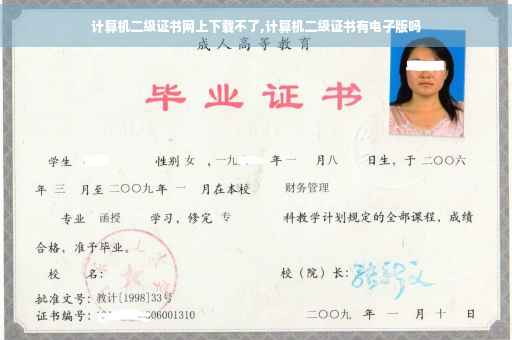 计算机二级证书网上下载不了,计算机二级证书有电子版吗
成人高等教育
毕业证书
学生 性别 女 ,一九 年 一 月 八 日生, 于 二〇〇六
年 三 月至 二〇〇九 年 一 月在本校 财务管理
专业 函授 学习, 修完 专 科教学计划规定的全部课程, 成绩
合格, 准予毕业。
校 名: 校(院)长:
批准文号: 教计[1998]33号
证书编号: 06001310 二〇〇九 年 一 月 十 日